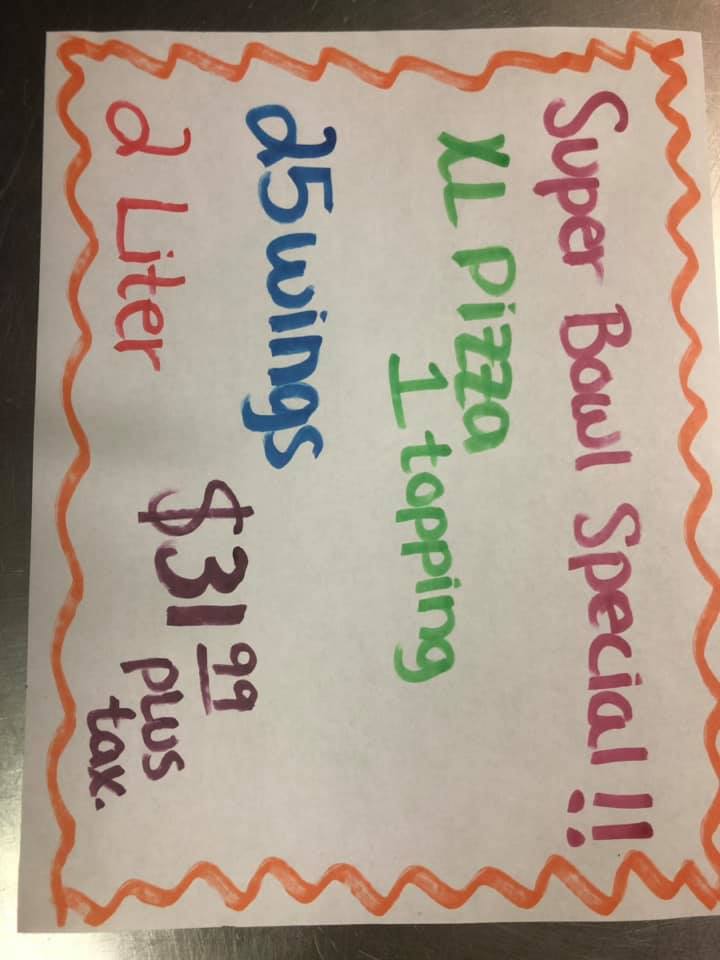 Super Bowl Special!!
XL Pizza
1 topping
25 wings
2 Liter
$31 99
plus
tax.